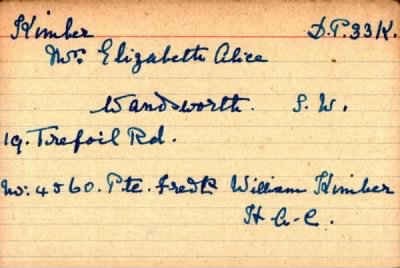 Kimber D.P.33K.
Mrs Elizabeth Alice
Wandsworth. S.W.
19. Trefoil Rd.
No: 4560. Pte. Fredk William Kimber
H.A.C.